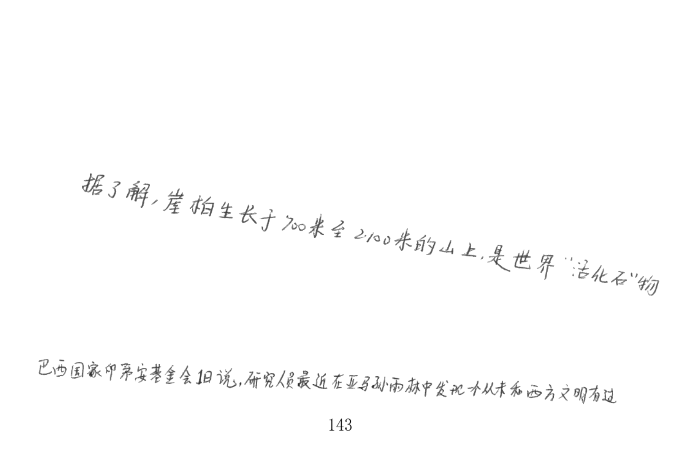 据了解,崖柏生长于700米至2100米的山上,是世界“活化石”物
巴西国家印第安基金会1日说,研究人员最近在亚马孙雨林中发现个从未和西方文明有过
143